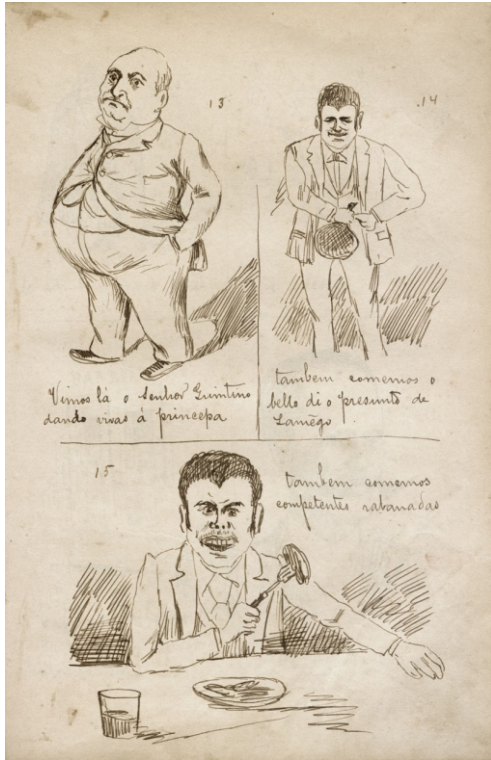 13
Vimos lá o Senhor Quintino
dando vivas á princepa
14
tambem comemos o
bello di o presunto de
Lamêgo.
15
tambem comemos
competentes rabanadas